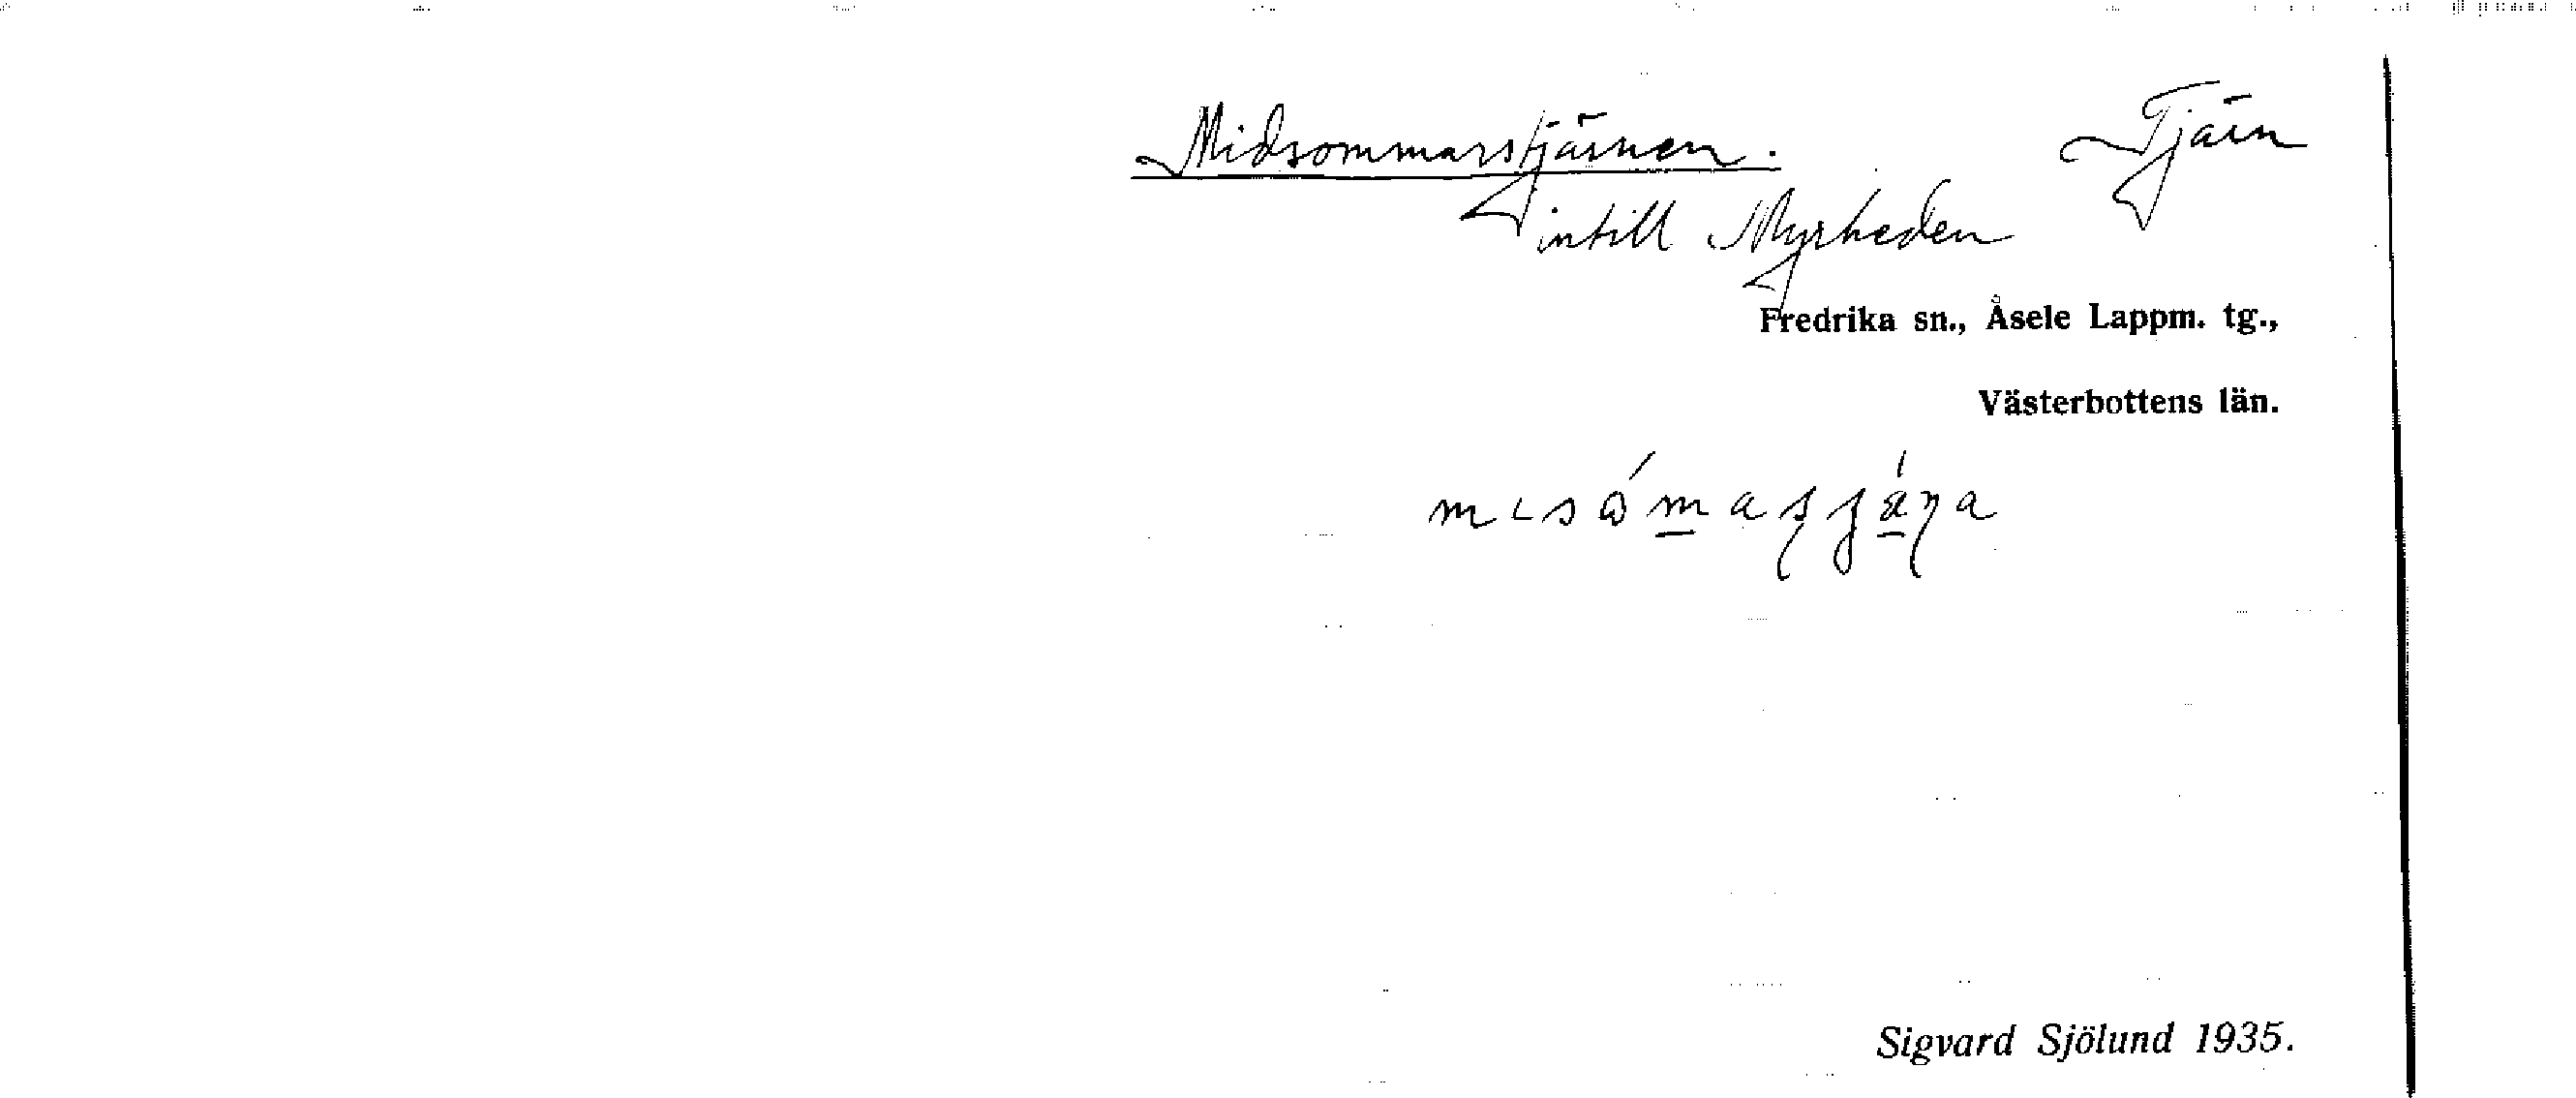 Midsommarstjärnen. Tjärn
intill Myrheden
Fredrika sn., Åsele Lappm. tg.,
Västerbottens län.
Sigvard Sjölund 1935.